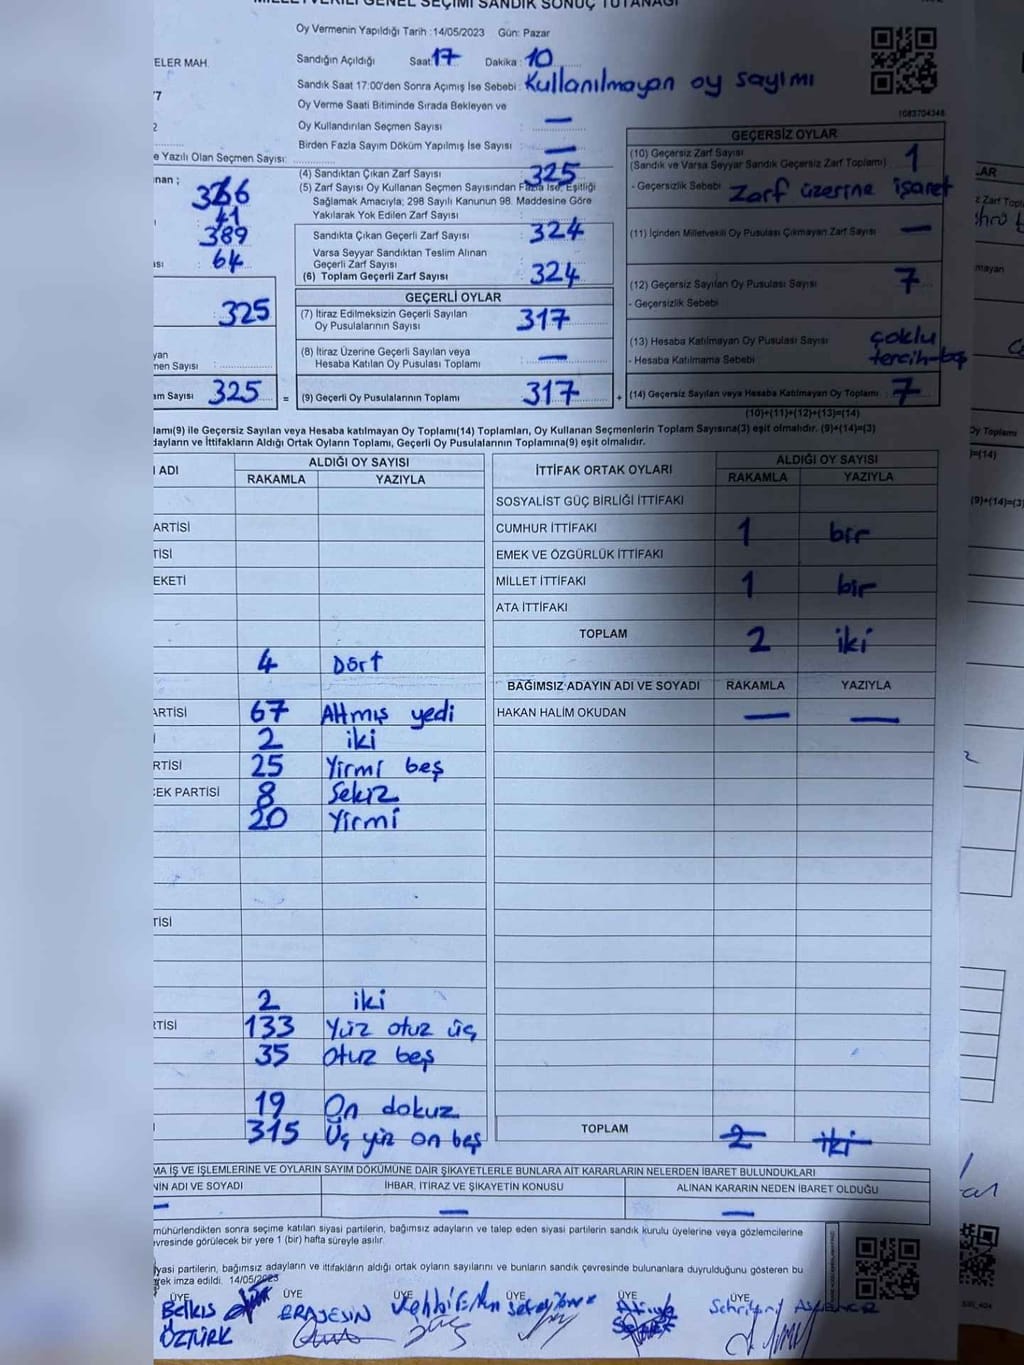 MİLLETVEKİLİ GENEL SEÇİMİ SANDIK SONUÇ TUTANAĞI
Oy Vermenin Yapıldığı Tarih :14/05/2023 Gün: Pazar
ELER MAH.
Sandığın Açıldığı Saat: 17 Dakika : 10
Sandık Saat 17:00'den Sonra Açılmış İse Sebebi : Kullanılmayan oy sayımı
Oy Verme Saati Bitiminde Sırada Bekleyen ve
Oy Kullandırılan Seçmen Sayısı : —
Birden Fazla Sayım Döküm Yapılmış İse Sayısı : —
1083704346
e Yazılı Olan Seçmen Sayısı:
nan ;
366
41
389
sı : 64
: 325
yan
men Sayısı :
am Sayısı : 325 =
(4) Sandıktan Çıkan Zarf Sayısı : 325
(5) Zarf Sayısı Oy Kullanan Seçmen Sayısından Fazla İse, Eşitliği
Sağlamak Amacıyla; 298 Sayılı Kanunun 98. Maddesine Göre
Yakılarak Yok Edilen Zarf Sayısı :
Sandıkta Çıkan Geçerli Zarf Sayısı : 324
Varsa Seyyar Sandıktan Teslim Alınan
Geçerli Zarf Sayısı :
(6) Toplam Geçerli Zarf Sayısı : 324
GEÇERLİ OYLAR
(7) İtiraz Edilmeksizin Geçerli Sayılan
Oy Pusulalarının Sayısı : 317
(8) İtiraz Üzerine Geçerli Sayılan veya
Hesaba Katılan Oy Pusulası Toplamı : —
(9) Geçerli Oy Pusulalarının Toplamı : 317 +
GEÇERSİZ OYLAR
(10) Geçersiz Zarf Sayısı
(Sandık ve Varsa Seyyar Sandık Geçersiz Zarf Toplamı) : 1
- Geçersizlik Sebebi : Zarf üzerine işaret
(11) İçinden Milletvekili Oy Pusulası Çıkmayan Zarf Sayısı : —
(12) Geçersiz Sayılan Oy Pusulası Sayısı : 7
- Geçersizlik Sebebi
(13) Hesaba Katılmayan Oy Pusulası Sayısı : çoklu
- Hesaba Katılmama Sebebi : tercih-boş
(14) Geçersiz Sayılan veya Hesaba Katılmayan Oy Toplamı : 7
(10)+(11)+(12)+(13)=(14)
lamı(9) ile Geçersiz Sayılan veya Hesaba katılmayan Oy Toplamı(14) Toplamları, Oy Kullanan Seçmenlerin Toplam Sayısına(3) eşit olmalıdır. (9)+(14)=(3)
dayların ve İttifakların Aldığı Ortak Oyların Toplamı, Geçerli Oy Pusulalarının Toplamına(9) eşit olmalıdır.
I ADI ALDIĞI OY SAYISI
RAKAMLA YAZIYLA
ARTİSİ
TİSİ
EKETİ
4 Dört
ARTİSİ 67 Altmış yedi
İ 2 iki
RTİSİ 25 Yirmi beş
CEK PARTİSİ 8 Sekiz
20 Yirmi
TİSİ
2 iki
RTİSİ 133 Yüz otuz üç
35 Otuz beş
19 On dokuz
315 Üç yüz on beş
İTTİFAK ORTAK OYLARI ALDIĞI OY SAYISI
RAKAMLA YAZIYLA
SOSYALİST GÜÇ BİRLİĞİ İTTİFAKI
CUMHUR İTTİFAKI 1 bir
EMEK VE ÖZGÜRLÜK İTTİFAKI
MİLLET İTTİFAKI 1 bir
ATA İTTİFAKI
TOPLAM 2 iki
BAĞIMSIZ ADAYIN ADI VE SOYADI RAKAMLA YAZIYLA
HAKAN HALİM OKUDAN — —
TOPLAM 2 iki
MA İŞ VE İŞLEMLERİNE VE OYLARIN SAYIM DÖKÜMÜNE DAİR ŞİKAYETLERLE BUNLARA AİT KARARLARIN NELERDEN İBARET BULUNDUKLARI
NİN ADI VE SOYADI İHBAR, İTİRAZ VE ŞİKAYETİN KONUSU ALINAN KARARIN NEDEN İBARET OLDUĞU
— — —
mühürlendikten sonra seçime katılan siyasi partilerin, bağımsız adayların ve talep eden siyasi partilerin sandık kurulu üyelerine veya gözlemcilerine
evresinde görülecek bir yere 1 (bir) hafta süreyle asılır.
iyasi partilerin, bağımsız adayların ve ittifakların aldığı ortak oyların sayılarını ve bunların sandık çevresinde bulunanlara duyrulduğunu gösteren bu
rek imza edildi. 14/05/2023
ÜYE ÜYE ÜYE ÜYE ÜYE ÜYE
Belkıs
ÖZTÜRK
AR
mayan
Oy Toplamı
)=(14)
(9)+(14)=(3)